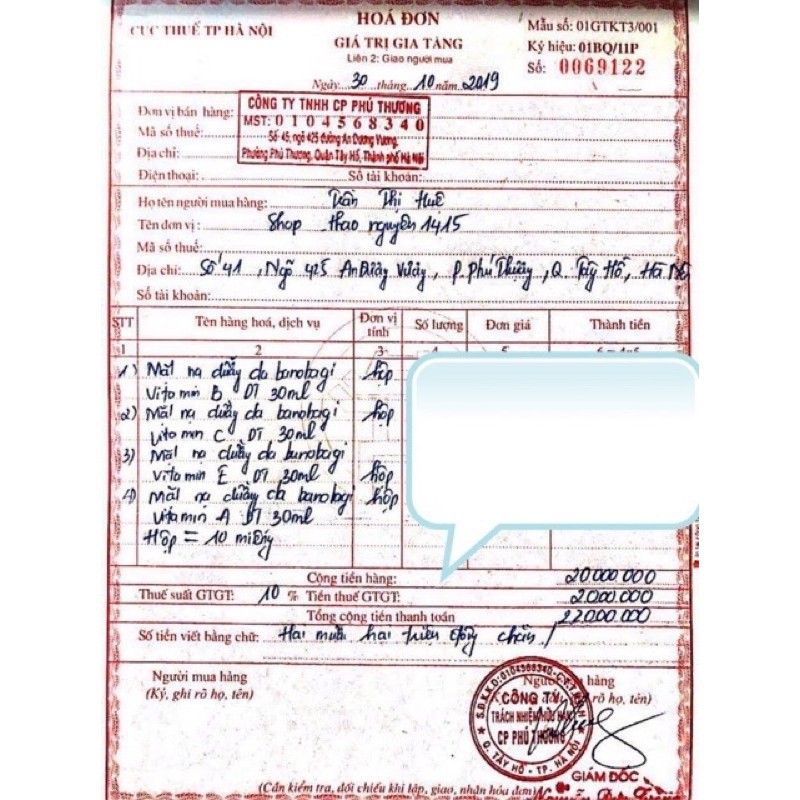 CỤC THUẾ TP HÀ NỘI
HOÁ ĐƠN
GIÁ TRỊ GIA TĂNG
Liên 2: Giao người mua
Ngày 30 tháng 10 năm 2019
Mẫu số: 01GTKT3/001
Ký hiệu: 01BQ/11P
Số: 0069122
Đơn vị bán hàng: CÔNG TY TNHH CP PHÚ THƯƠNG
Mã số thuế: MST: 0104568340
Địa chỉ: Số 45, ngõ 425 đường An Dương Vương,
Phường Phú Thượng, Quận Tây Hồ, Thành phố Hà Nội
Điện thoại: Số tài khoản:
Họ tên người mua hàng: Trần Thị Huệ
Tên đơn vị: Shop thao nguyên 1415
Mã số thuế:
Địa chỉ: Số 41, Ngõ 425 An Dương Vương, P. Phú Thượng, Q. Tây Hồ, Hà Nội
Số tài khoản:
STT Tên hàng hoá, dịch vụ Đơn vị tính Số lượng Đơn giá Thành tiền
1 2 3
1) Mặt nạ dưỡng da banobagi hộp
Vitamin B DT 30ml
2) Mặt nạ dưỡng da banobagi hộp
Vitamin C DT 30ml
3) Mặt nạ dưỡng da banobagi
Vitamin E DT 30ml hộp
4) Mặt nạ dưỡng da banobagi hộp
Vitamin A DT 30ml
Hộp = 10 miếng
Cộng tiền hàng: 20000000
Thuế suất GTGT: 10 % Tiền thuế GTGT: 2000000
Tổng cộng tiền thanh toán 22000000
Số tiền viết bằng chữ: Hai mươi hai triệu đồng chẵn /
Người mua hàng
(Ký, ghi rõ họ, tên)
Người bán hàng
ghi rõ họ, tên)
S.Đ.K.K.D:0104568340
CÔNG TY
TRÁCH NHIỆM HỮU HẠN
CP PHÚ THƯƠNG
Q. TÂY HỒ - TP. HÀ NỘI
GIÁM ĐỐC
(Cần kiểm tra, đối chiếu khi lập, giao, nhận hóa đơn)
Nguyễn